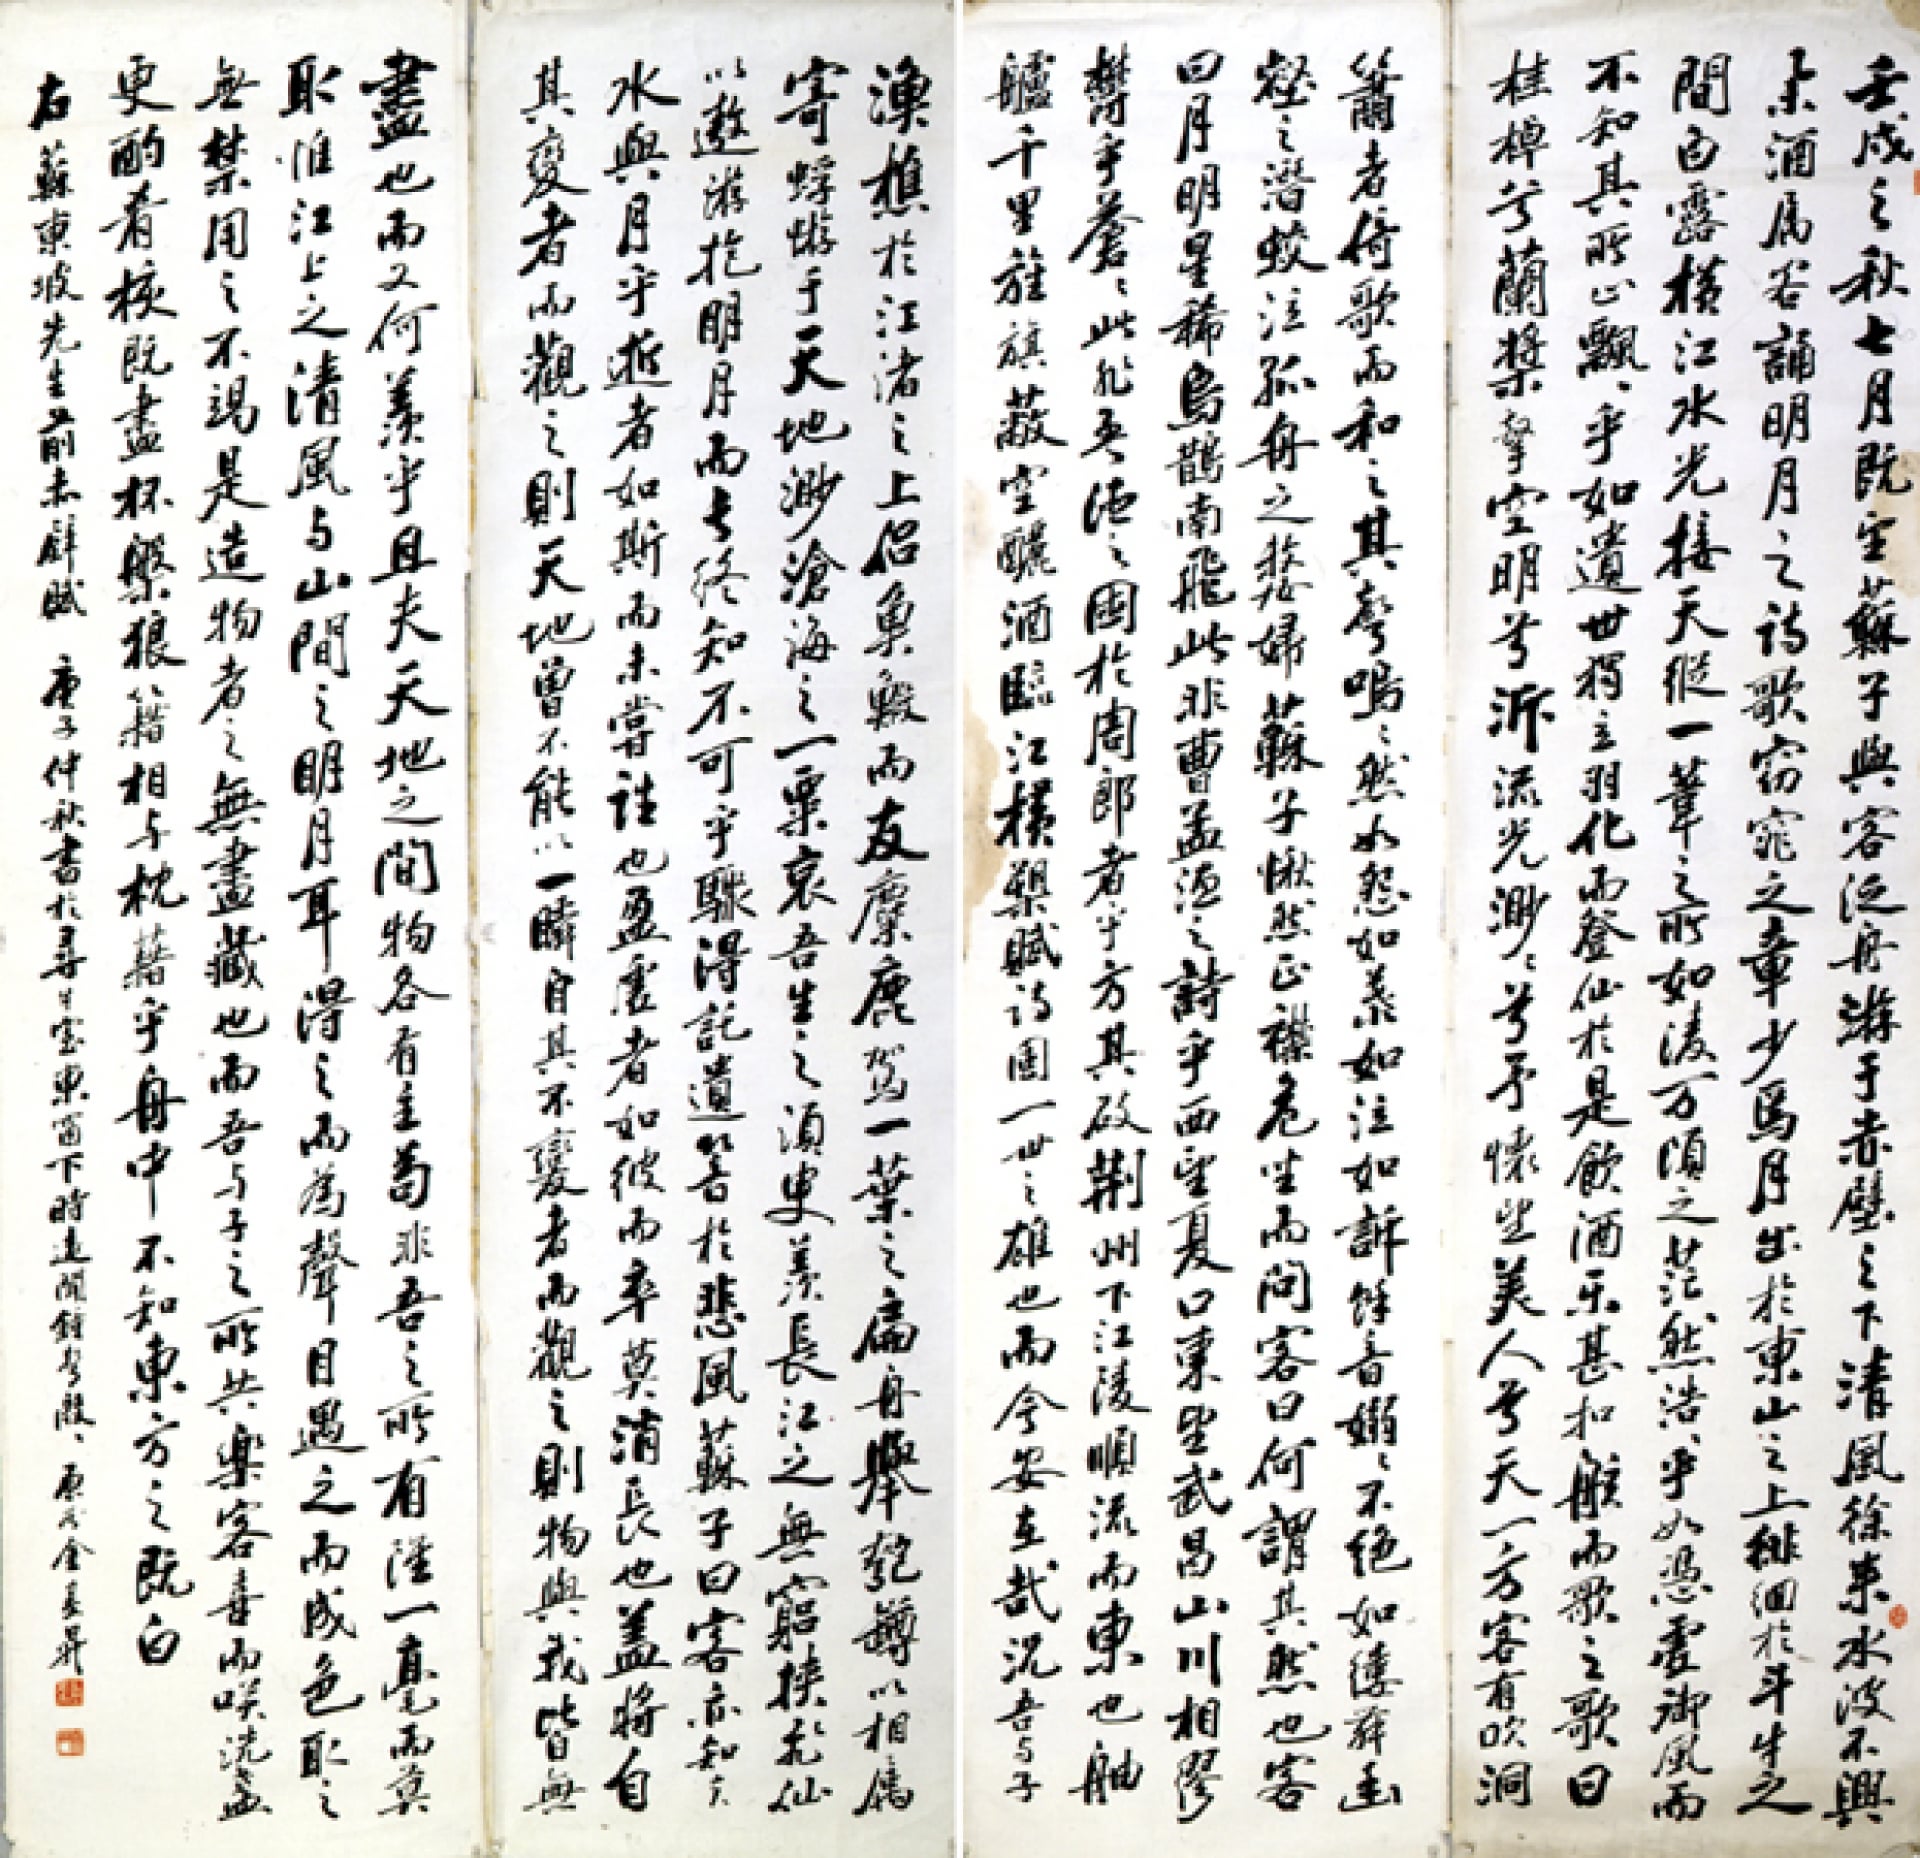 壬戌之秋七月既望蘇子與客泛舟游于赤壁之下清風徐來水波不興
酒属客誦明月之詩歌窈窕之章少焉月出於東山之上徘徊於斗牛之
間白露橫江水光接天縱一葦之所如凌万頃之茫然浩々乎如憑虛御風而
不知其所止飄々乎如遺世獨立羽化而登仙於是飲酒乐甚扣舷而歌之歌曰
桂棹兮蘭槳擊空明兮泝流光渺々兮予懷望美人兮天一方客有吹洞
簫者倚歌而和之其聲嗚々然如怨如慕如泣如訴餘音嫋々不绝如縷舞幽
壑之潛蛟泣孤舟之嫠婦蘇子愀然正襟危坐而问客曰何謂其然也客
曰月明星稀烏鵲南飛此非曹孟德之詩乎西望夏口東望武昌山川相繆
欝乎蒼々此非孟德之困於周郎者乎方其破荆州下江陵順流而東也舳
艫千里旌旗蔽空釃酒臨江橫槊賦詩固一世之雄也而今安在哉况吾与子
漁樵於江渚之上侣魚鰕而友麋鹿驾一葉之扁舟舉匏罇以相屬
寄蜉蝣于天地渺滄海之一粟哀吾生之須臾羡長江之無窮挟飛仙
以遨游抱明月而長终知不可乎驟得託遺響於悲風蘇子曰客亦知夫
水與月乎逝者如斯而未嘗往也盈虛者如彼而卒莫消長也盖將自
其變者而觀之則天地曾不能以一瞬自其不變者而觀之則物與我皆無
盡也而又何羡乎且夫天地之間物各有主苟非吾之所有雖一毫而莫
取惟江上之清風与山間之明月耳得之而為聲目遇之而成色取之
無禁用之不竭是造物者之無盡藏也而吾与子之所共樂客喜而咲洗盞
更酌肴核既盡杯盤狼籍相与枕藉乎舟中不知東方之既白
右蘇東坡先生前赤壁賦 庚子仲秋書於尋 室東窗下時遠聞鐘聲